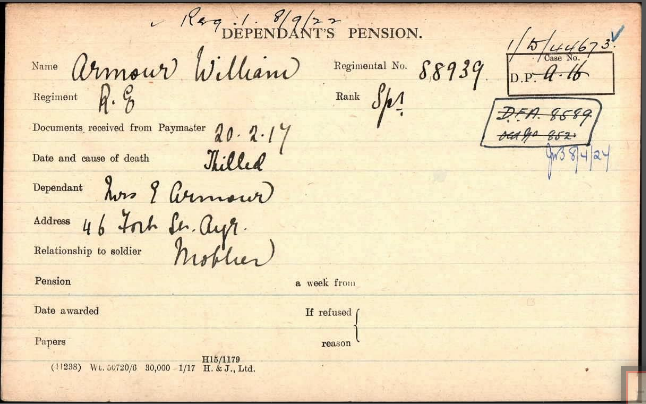 ✓ Reg. 1. 8/9/22
DEPENDANT'S PENSION.
1/D/44673
Name Armour William Regimental No. 88939 Case No.
D.P.
Regiment R.E Rank Spr
D.F.A. 8589
Documents received from Paymaster 20.2.17
8/4/24
Date and cause of death Killed
Dependant Mrs E Armour
Address 46 Fort St. Ayr.
Relationship to soldier Mother
Pension a week from
Date awarded If refused
Papers reason
(11238) Wt. 50720/6 30,000 -1/17 H15/1179 H. & J., Ltd.